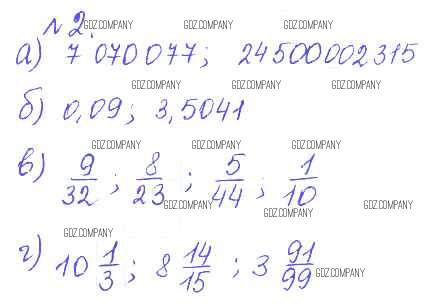 №2. GDZ.COMPANY GDZ.COMPANY GDZ.COMPANY
а) 7 070 077; 24500002315
GDZ.COMPANY GDZ.COMPANY GDZ.COMPANY
б) 0,09; 3,5041
GDZ.COMPANY GDZ.COMPANY GDZ.COMPANY
в) 9/32; 8/23; 5/44; 1/10
GDZ.COMPANY GDZ.COMPANY
GDZ.COMPANY
GDZ.COMPANY
г) 10 1/3; 8 14/15; 3 91/99
GDZ.COMPANY